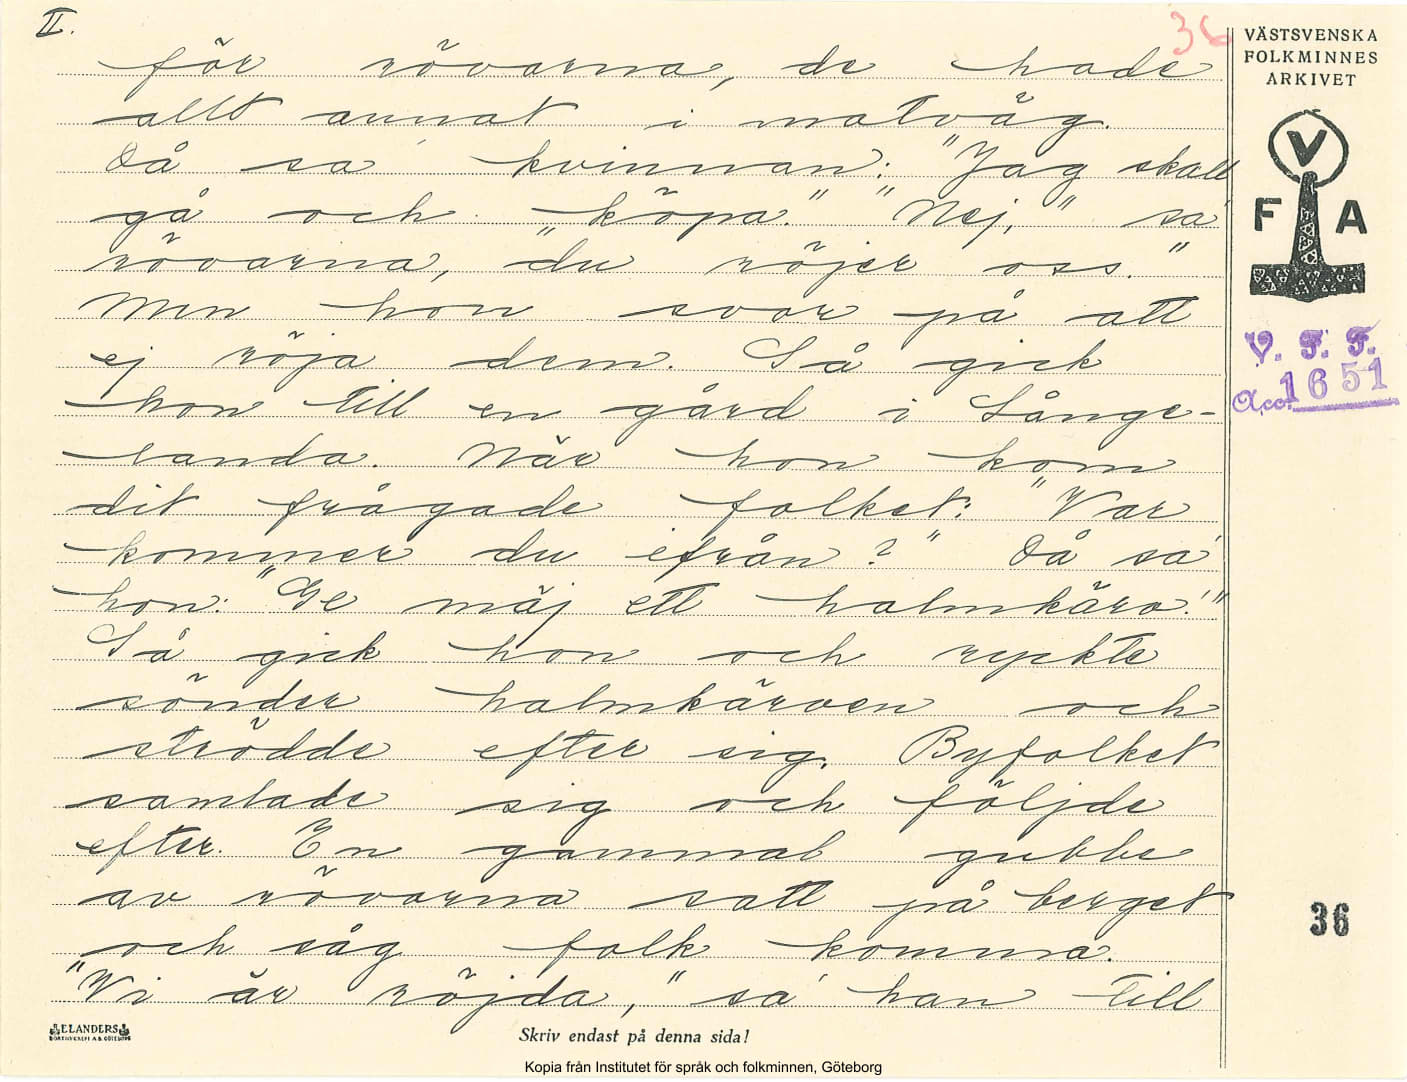 II.
36
för rövarna, de hade
allt annat i matväg.
Då sa' kvinnan: "Jag skall
gå och köpa." "Nej," sa'
rövarna, "du röjer oss."
Men hon svor på att
ej röja dem. Så gick
hon till en gård i Långe-
landa. När hon kom
dit frågade folket: "Var
kommer du ifrån?" Då sa'
hon: "Ge mäj ett halmkärve!"
Så gick hon och ryckte
sönder halmkärven och
strödde efter sig. Byfolket
samlade sig och följde
efter. En gammal gubbe
av rövarna satt på berget
och såg folk komma.
"Vi är röjda," sa' han till
VÄSTSVENSKA
FOLKMINNES
ARKIVET
V
F A
V. F. F.
Acc. 1651
36
ELANDERS
BOKTRYCKERI A.B. GÖTEBORG
Skriv endast på denna sida!
Kopia från Institutet för språk och folkminnen, Göteborg